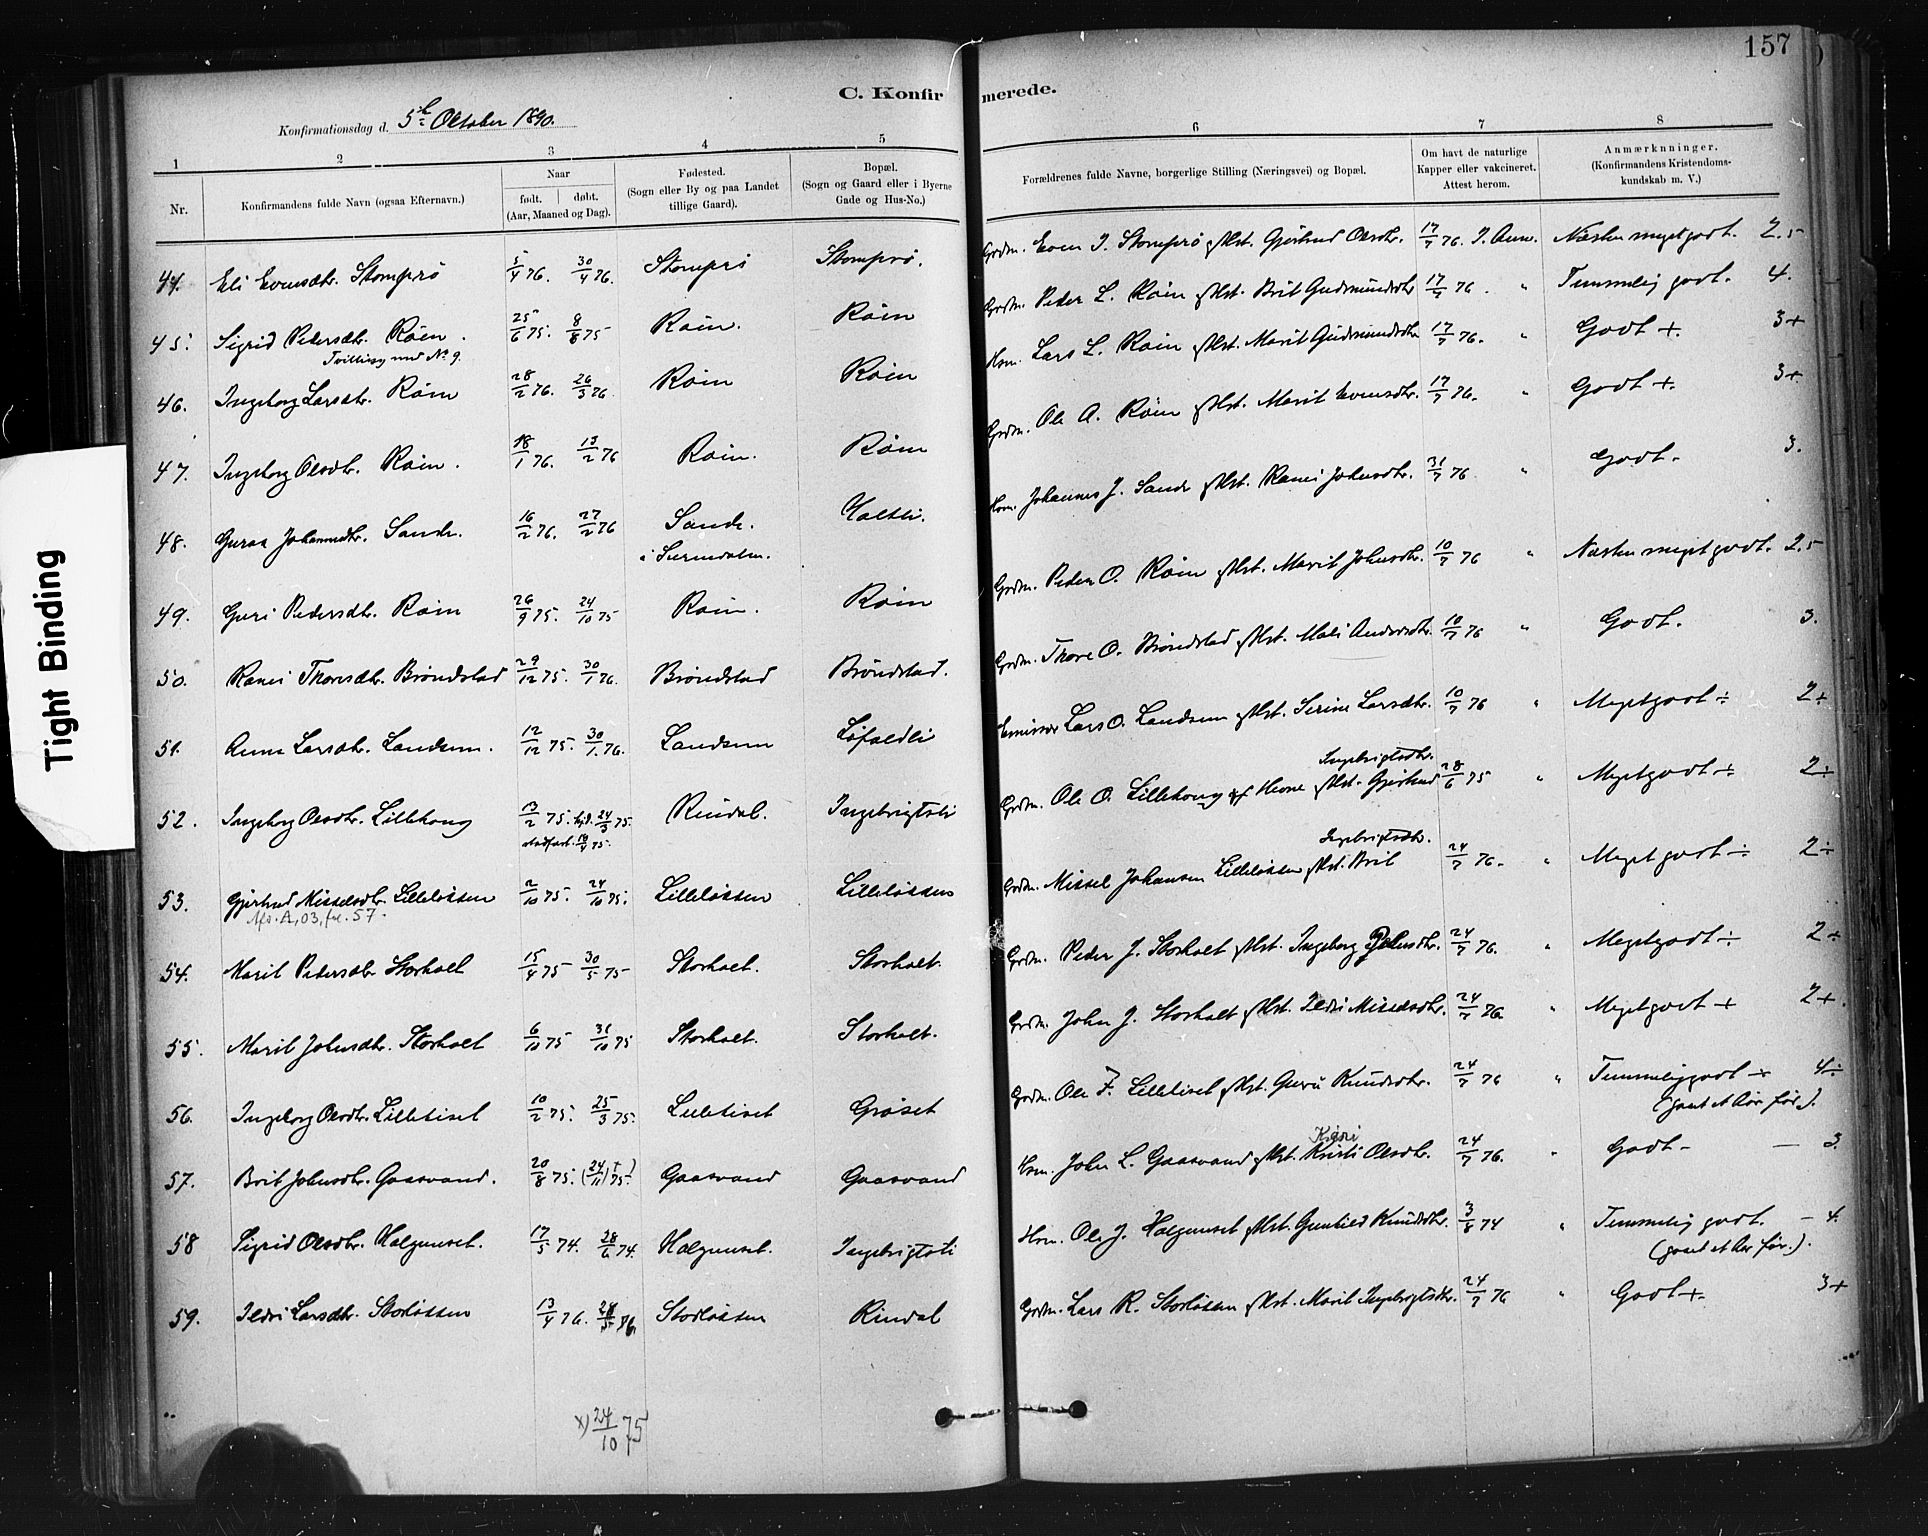 157
C. Konfirmerede.
Konfirmationsdag d. 5te Oktober 1890.
1 2 3 4 5 6 7 8
Nr.
Konfirmandens fulde Navn (ogsaa Efternavn).
Naar
født. døbt.
(Aar, Maaned og Dag).
Fødested.
(Sogn eller By og paa Landet
tillige Gaard).
Bopæl.
(Sogn og Gaard eller i Byerne
Gade og Hus-No.)
Forældrenes fulde Navne, borgerlige Stilling (Næringsvei) og Bopæl.
Om havt de naturlige
Kapper eller vakcineret.
Attest herom.
Anmærkninger.
(Konfirmandens Kristendoms-
kundskab m. V.)
44. Eli Evensdtr. Stomprø 5/4 76. 30/4 76. Stomprø Stomprø. Grdm. Even J. Stomprø og Hst. Gjertrud Olsdtr. 17/7 76. Næsten meget godt. 2.5
45. Sigrid Pedersdtr. Røin. 25/6 75. 8/8 75 Røin. Røin Grdm. Peder L. Røin og Hst. Brit Gudmundsdtr 17/7 76. " Temmelig godt. 4.
Tvilling med No 9.
46. Ingeborg Larsdtr. Røin 28/2 76. 26/3 76 Røin Røin Hsm. Lars L. Røin og Hst. Marit Gudmundsdtr 17/7 76. " Godt +. 3+
47. Ingeborg Olsdtr. Røin. 18/1 76. 13/2 76 Røin. Røin Grdm. Ole A. Røin og Hst. Marit Evensdtr. 17/7 76. " Godt +. 3+
48. Guroa Johannesdtr. Sande. 16/2 76. 27/2 76 Sande. Hsm. Johannes J. Sande og Hst. Rani Johnsdtr. 31/7 76 " Godt. 3.
i Surendalen.
49. Guri Pedersdtr. Røin 26/9 75. 24/10 75 Røin. Røin Grdm. Peder O. Røin og Hst. Marit Johnsdtr. 10/7 76 " Næsten meget godt. 2.5
50. Rani Thoresdtr. Brøndstad 29/12 75. 30/1 76. Brøndstad Brøndstad. Grdm. Thore O. Brøndstad og Hst. Mali Andersdtr. 10/7 76 " Godt. 3.
51. Anne Larsdtr. Landsem. 12/12 75. 30/1 76. Landsem Løfaldli Emissær Lars O. Landsem og Hst. Serine Larsdtr. 10/7 76 " Meget godt ÷ 2÷
Ingebrigtsdtr.
52. Ingeborg Olsdtr. Lillehoug 13/2 75. hjd. 24/3 75. Rindal. Ingebrigtsli Grdm. Ole O. Lillehoug af Hevne og Hst. Gjertrud 28/6 75 " Meget godt ÷ 2÷
stadfæst. 19/4 75.
Ingebrigtsdtr.
53. Gjertrud Misselsdtr. Lilleløssen 2/10 75. 24/10 75. Lilleløssen Lilleløssen Grdm. Missel Johansen Lilleløssen og Hst. Brit 24/7 76. " Meget godt ÷ 2÷
54. Marit Pedersdtr Storholt 15/4 75 30/5 75 Storholt. Storholt. Grdm. Peder J. Storholt og Hst. Ingeborg Johnsdtr. 24/7 76. " Meget godt ÷ 2÷
55. Marit Johnsdtr. Storholt 6/10 75 31/10 75 Storholt. Storholt. Grdm. John J. Storholt og Hst. Ildri Misselsdtr. 24/7 76. " Meget godt + 2+.
56. Ingeborg Olsdtr. Lilletiset 10/2 75. 25/3 75. Lilletiset Grøset Grdm. Ole F. Lilletiset og Hst. Guru Knudsdtr. 24/7 76 " Temmelig godt ÷ 4÷
(gaaet et Aar før).
Kari
57. Brit Johnsdtr. Gaasvand. 20/8 75. (24/11 75.) Gaasvand Gaasvand Hsm. John L. Gaasvand og Hst. Kristi Olsdtr. 24/7 76. " Godt - — 3.
58 Sigrid Olsdtr. Halgunset. 17/5 74. 28/6 74. Halgunset. Ingebrigtsli Hsm. Ole J. Halgunset og Hst. Gunhild Knudsdtr. 3/8 74 " Temmelig godt. — 4.
(gaaet et Aar før.).
59. Ildri Larsdtr. Storløssen 13/4 76. Storløssen Rindal Grdm. Lars R. Storløssen og Hst. Marit Ingebrigtsdtr. 24/7 76 " Godt +. 3+
x) 24/10 75
Tight Binding